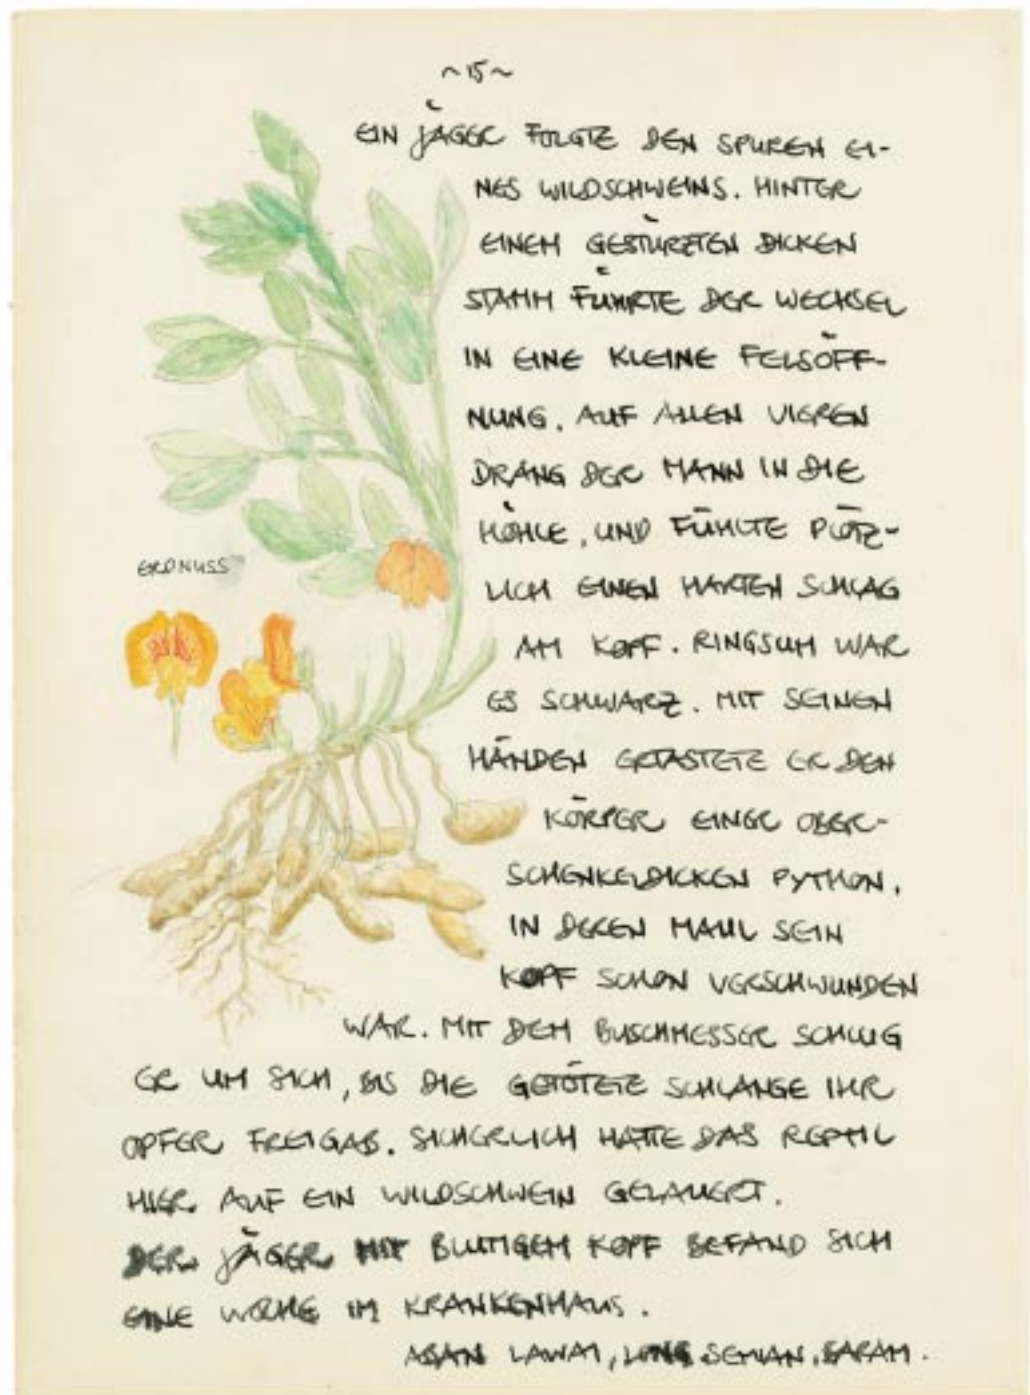 ~15~
EIN JÄGER FOLGTE DEN SPUREN EI-
NES WILDSCHWEINS. HINTER
EINEM GESTÜRZTEN DICKEN
STAMM FÜHRTE DER WECHSEL
IN EINE KLEINE FELSÖFF-
NUNG. AUF ALLEN VIEREN
DRANG DER MANN IN DIE
HÖHLE, UND FÜHLTE PLÖTZ-
LICH EINEN HARTEN SCHLAG
ERDNUSS
AM KOPF. RINGSUM WAR
ES SCHWARZ. MIT SEINEN
HÄNDEN ERTASTETE ER DEN
KÖRPER EINER OBER-
SCHENKELDICKEN PYTHON,
IN DEREN MAUL SEIN
KOPF SCHON VERSCHWUNDEN
WAR. MIT DEM BUSCHMESSER SCHLUG
ER UM SICH, BIS DIE GETÖTETE SCHLANGE IHR
OPFER FREIGAB. SICHERLICH HATTE DAS REPTIL
HIER AUF EIN WILDSCHWEIN GELAUERT.
DER JÄGER MIT BLUTIGEM KOPF BEFAND SICH
EINE WOCHE IM KRANKENHAUS.
LAWAI, LONG SEMIAN,